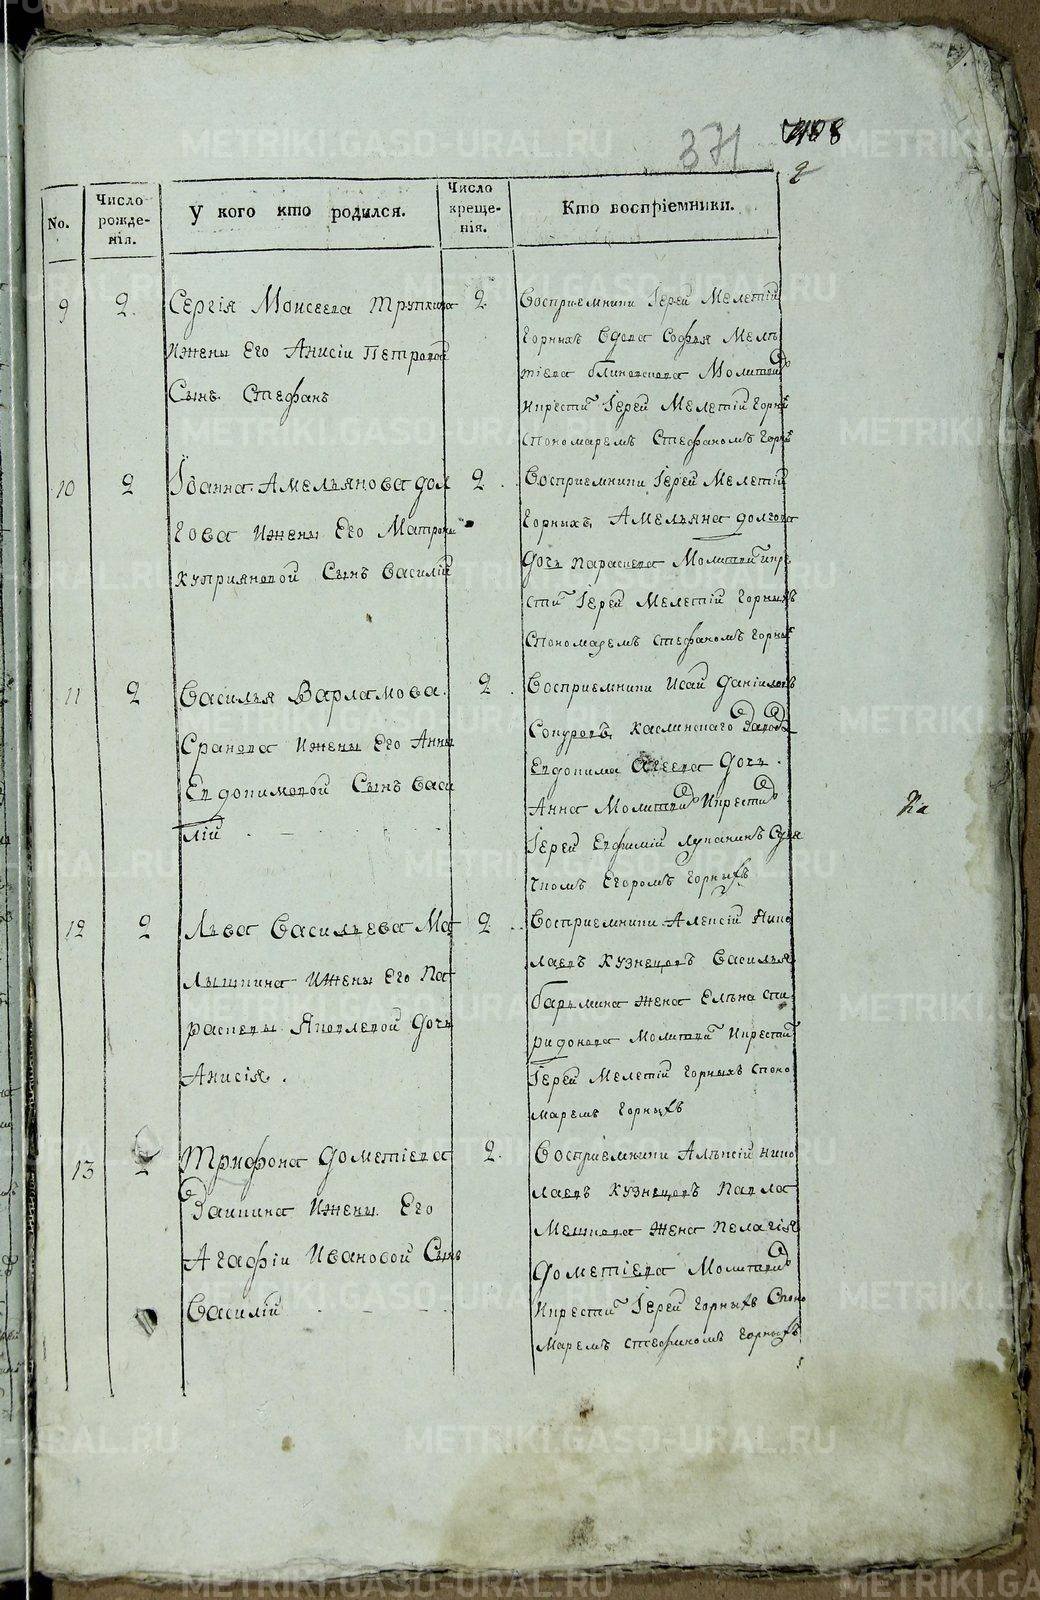 371 408
2
No.
Число рожде-нія.
У кого кто родился.
Число креще-нія.
Кто воспріемники.
9
2.
Сергія Моисеева Трупкина
Ижены Его Анисіи Петровой
Сынъ Стефанъ
2
Восприемники Іерей Мелетій
Горныхъ Вдова Софья Меле
тіева Молитвы
Икрести Іерей Мелетій Горны
Спономаремъ Стефаномъ Горны
10
2
Іоанна Амельянова дол
гова Ижены Его Матроны
куприяновой Сынъ Василій
2
Восприемники Іерей Мелетій
Горныхъ, Амельяна долгова
Дочь Параскева Молитвы икре
сти Іерей Мелетій Горныхъ
Спономаремъ Стефаномъ Горны
11
2
Василья Варламова
Ижены Его Анны
Евдокимовой Сынъ Васи
лій
2
Восприемники Исай даниловъ
Каслинскаго Завода
Евдокима Агеева Дочь
Анна Молитвы Икрести
Іерей Евфимій Лупанинъ
Егоромъ Горныхъ
12
2
Льва Васильева Ма
лышкина Ижены Его Па
раскевы Яковлевой Дочь
Анисія.
2
Восприемники Алексій Нико
лаевъ Кузнецовъ Василья
жена Елѣна Спи
ридонова Молитвы Икрести
Іерей Мелетій Горныхъ споно
маремъ Горныхъ
13
2
Трифона Дометіева
Заикина Ижены Его
Агафіи Ивановой Сынъ
Василій
2.
Восприемники Алѣксій Нико
лаевъ Кузнецовъ Павла
Мешкова Жена Пелагія
Дометіева Молитвы
Икрести Іерей Горныхъ Споно
Маремъ Стефаномъ Горныхъ
METRIKI.GASO-URAL.RU